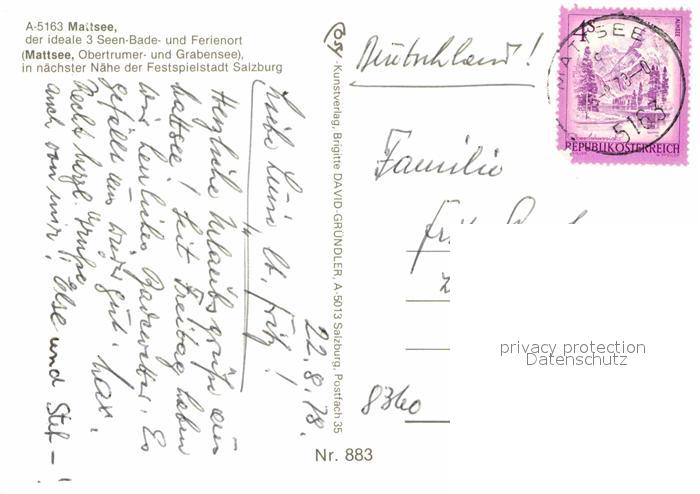 A-5163 Mattsee,
der ideale 3 Seen-Bade- und Ferienort
(Mattsee, Obertrumer- und Grabensee),
in nächster Nähe der Festspielstadt Salzburg
22.8.78.
Liebe Luise u. Fritz!
Herzliche Urlaubsgrüße aus
Mattsee! Seit Freitag haben
wir herrliches Badewetter. Es
gefällt uns wieder gut.
Recht herzl. Grüße
auch von mir, Else und
-Kunstverlag, Brigitte DAVID-GRÜNDLER, A-5013 Salzburg, Postfach 35
Nr. 883
Deutschland!
Familie
8360
4S
AUSSEE
REPUBLIK ÖSTERREICH
MATTSEE
5163
privacy protection
Datenschutz